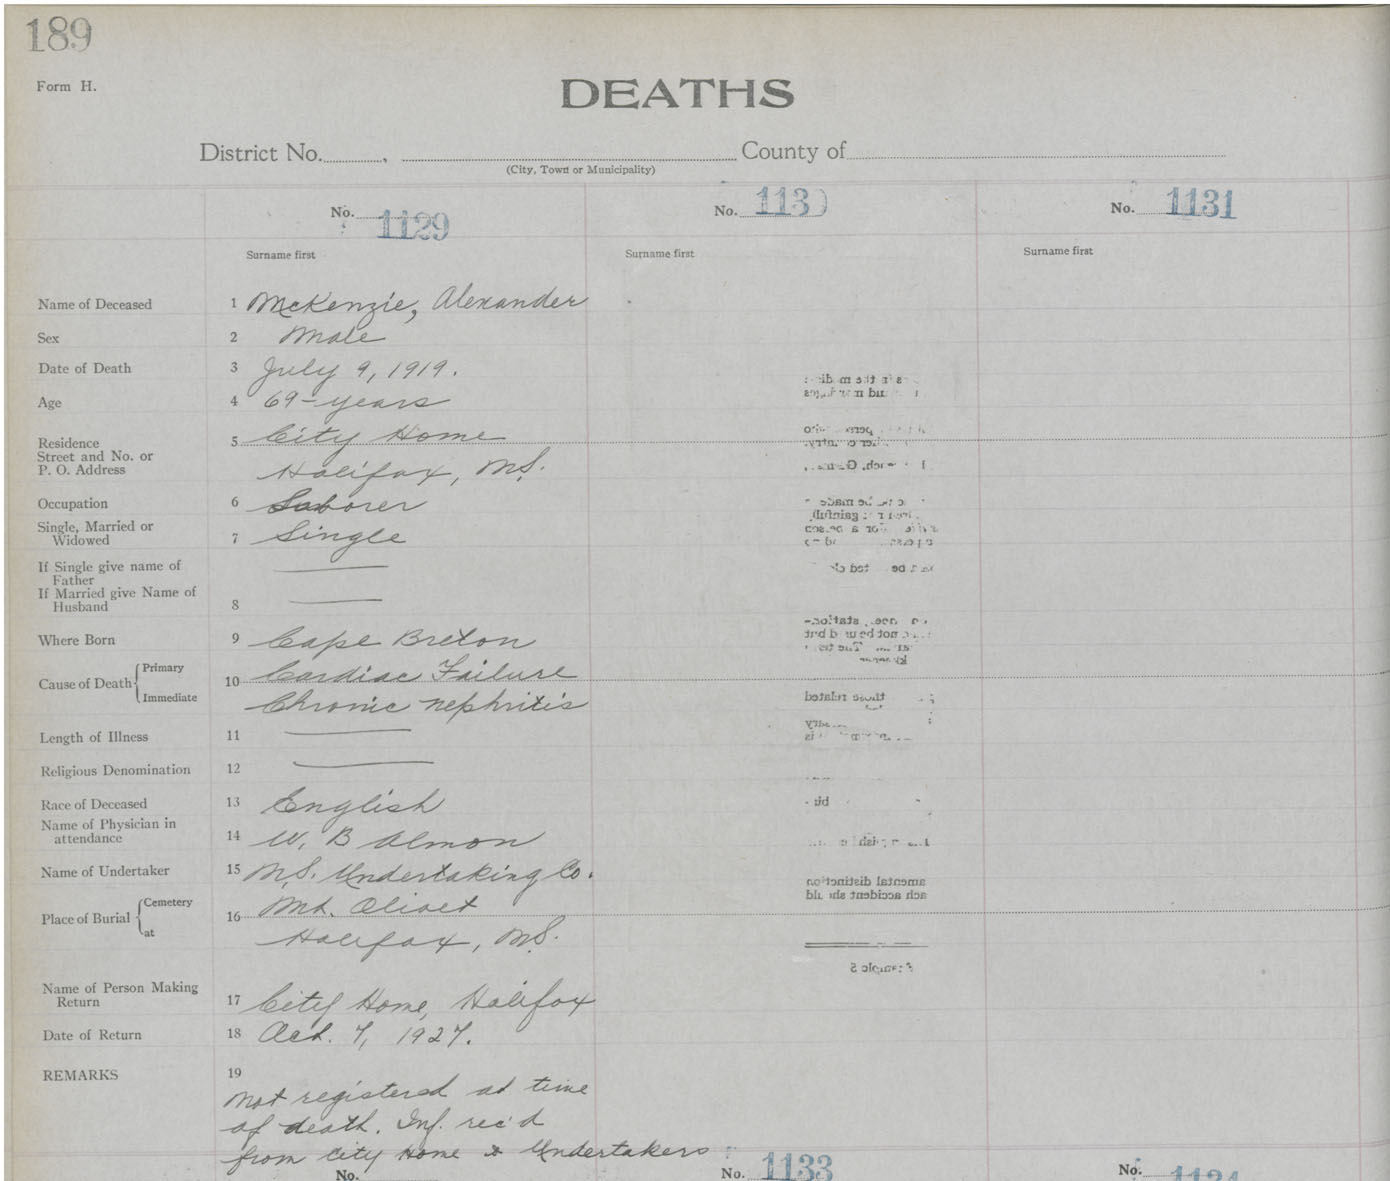 189
Form H.
DEATHS
District No. , County of
(City, Town or Municipality)
No. 1129 No. 1130 No. 1131
Surname first Surname first Surname first
Name of Deceased 1 McKenzie, Alexander
Sex 2 Male
Date of Death 3 July 9, 1919.
Age 4 69-years
Residence 5 City Home
Street and No. or
P. O. Address Halifax, N.S.
Occupation 6 Laborer
Single, Married or
Widowed 7 Single
If Single give name of
Father
If Married give Name of
Husband 8
Where Born 9 Cape Breton
Cause of Death Primary 10 Cardiac Failure
Immediate Chronic nephritis
Length of Illness 11
Religious Denomination 12
Race of Deceased 13 English
Name of Physician in
attendance 14 W. B Almon
Name of Undertaker 15 N.S. Undertaking Co.
Place of Burial Cemetery 16 Mt. Olivet
at Halifax, N.S.
Name of Person Making
Return 17 City Home, Halifax
Date of Return 18 Oct. 7, 1927.
REMARKS 19
Not registered at time
of death. Inf. rec'd
from City Home & Undertakers
No. No. 1133 No. 1134